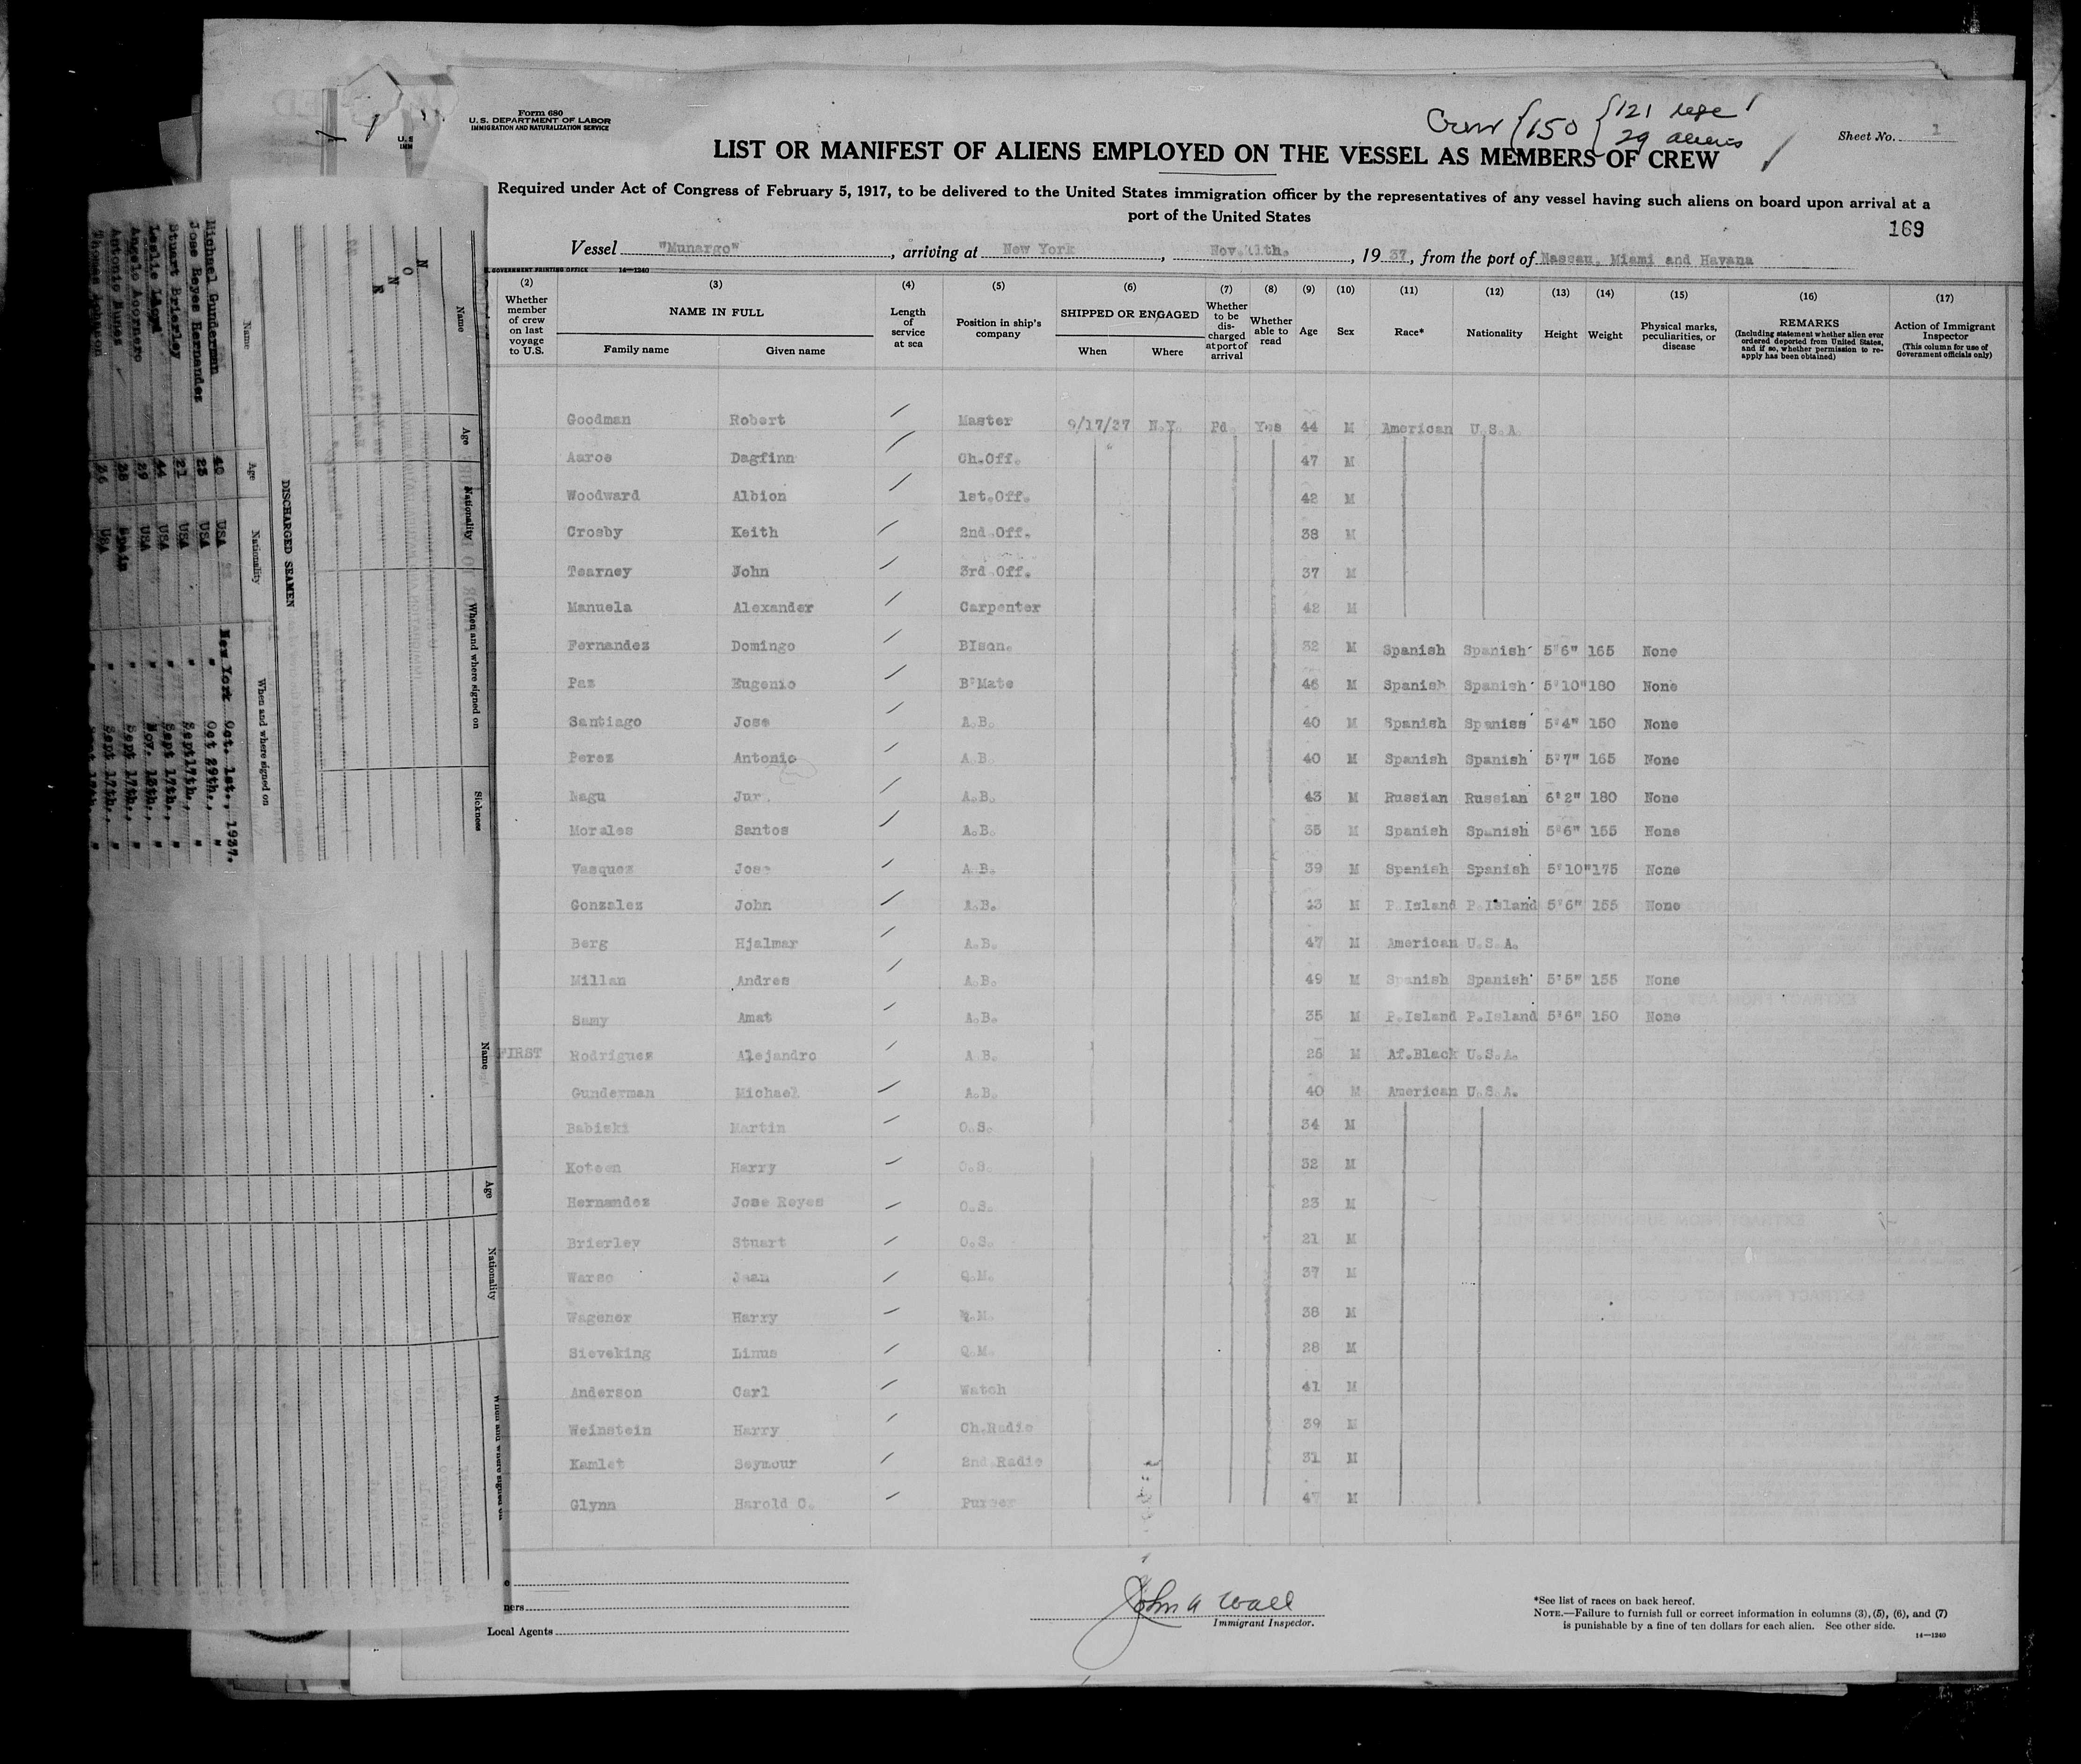 Form 680
U.S. DEPARTMENT OF LABOR
IMMIGRATION AND NATURALIZATION SERVICE
Crew { 150 { 121
29 aliens
Sheet No. 1
LIST OR MANIFEST OF ALIENS EMPLOYED ON THE VESSEL AS MEMBERS OF CREW
Required under Act of Congress of February 5, 1917, to be delivered to the United States immigration officer by the representatives of any vessel having such aliens on board upon arrival at a
port of the United States
169
Vessel "Munargo", arriving at New York, Nov. 11th., 1937, from the port of Nassau, Miami and Havana
GOVERNMENT PRINTING OFFICE 14—1240
(2) Whether member of crew on last voyage to U.S.
(3) NAME IN FULL Family name Given name
(4) Length of service at sea
(5) Position in ship's company
(6) SHIPPED OR ENGAGED When Where
(7) Whether to be discharged at port of arrival
(8) Whether able to read
(9) Age
(10) Sex
(11) Race*
(12) Nationality
(13) Height
(14) Weight
(15) Physical marks, peculiarities, or disease
(16) REMARKS (Including statement whether alien ever ordered deported from United States, and if so, whether permission to re-apply has been obtained)
(17) Action of Immigrant Inspector (This column for use of Government officials only)
Goodman Robert Master 9/17/37 N.Y. Pd. Yes 44 M American U.S.A.
Aaroe Dagfinn Ch.Off. " 47 M
Woodward Albion 1st.Off. 42 M
Crosby Keith 2nd.Off. 38 M
Tearney John 3rd Off. 37 M
Manuela Alexander Carpenter 42 M
Fernandez Domingo B'son. 32 M Spanish Spanish 5'6" 165 None
Paz Eugenio B'Mate 46 M Spanish Spanish 5'10" 180 None
Santiago Jose A.B. 40 M Spanish Spaniss 5'4" 150 None
Perez Antonio A.B. 40 M Spanish Spanish 5'7" 165 None
Nagu Jur. A.B. 43 M Russian Russian 6'2" 180 None
Morales Santos A.B. 35 M Spanish Spanish 5'6" 155 None
Vasquez Jose A.B. 39 M Spanish Spanish 5'10" 175 None
Gonzalez John A.B. 43 M P.Island P.Island 5'6" 155 None
Berg Hjalmar A.B. 47 M American U.S.A.
Millan Andres A.B. 49 M Spanish Spanish 5'5" 155 None
Samy Amat A.B. 35 M P.Island P.Island 5'6" 150 None
FIRST Rodriguez Alejandro A.B. 26 M Af.Black U.S.A.
Gunderman Michael A.B. 40 M American U.S.A.
Babiski Martin O.S. 34 M
Koteen Harry O.S. 32 M
Hernandez Jose Reyes O.S. 23 M
Brierley Stuart O.S. 21 M
Warse Jaan Q.M. 37 M
Wagener Harry Q.M. 38 M
Sieveking Linus Q.M. 28 M
Anderson Carl Watch 41 M
Weinstein Harry Ch.Radio 39 M
Kamlet Seymour 2nd.Radio 31 M
Glynn Harold C. Purser 47 M
Local Agents
John A Wall
Immigrant Inspector.
*See list of races on back hereof.
NOTE.—Failure to furnish full or correct information in columns (3), (5), (6), and (7)
is punishable by a fine of ten dollars for each alien. See other side.
14—1240
Name Age Nationality When and where signed on Sickness
NONE
DISCHARGED SEAMEN
Name Age Nationality When and where signed on
Michael Gunderman 40 USA New York Oct. 1st., 1937.
Jose Reyes Hernandez 23 USA " Oct 29th., "
Stuart Brierley 21 USA " Sept 17th., "
Leslie 44 USA " Sept 17th., "
Angelo Acornero 29 USA " Nov. 15th., "
Antonio Nunes 38 Spain " Sept 17th., "
Thomas Johnson 36 USA " Sept 17th., "
Name Age Nationality When and where signed on